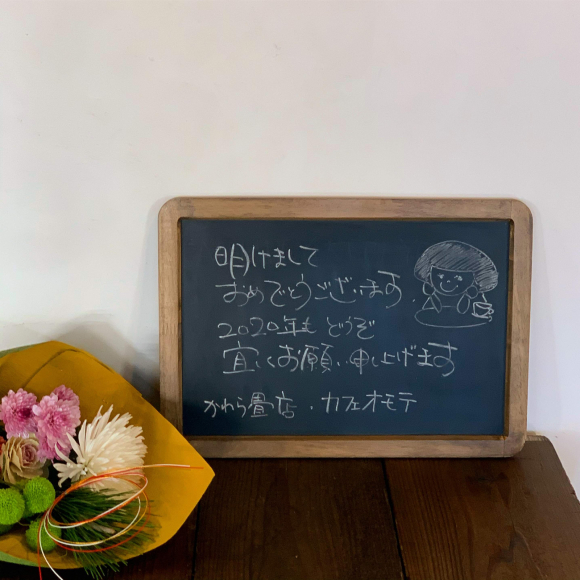 明けまして
おめでとうございます.
2020年も どうぞ
宜しくお願い申し上げます
かわら畳店・カフェオモテ